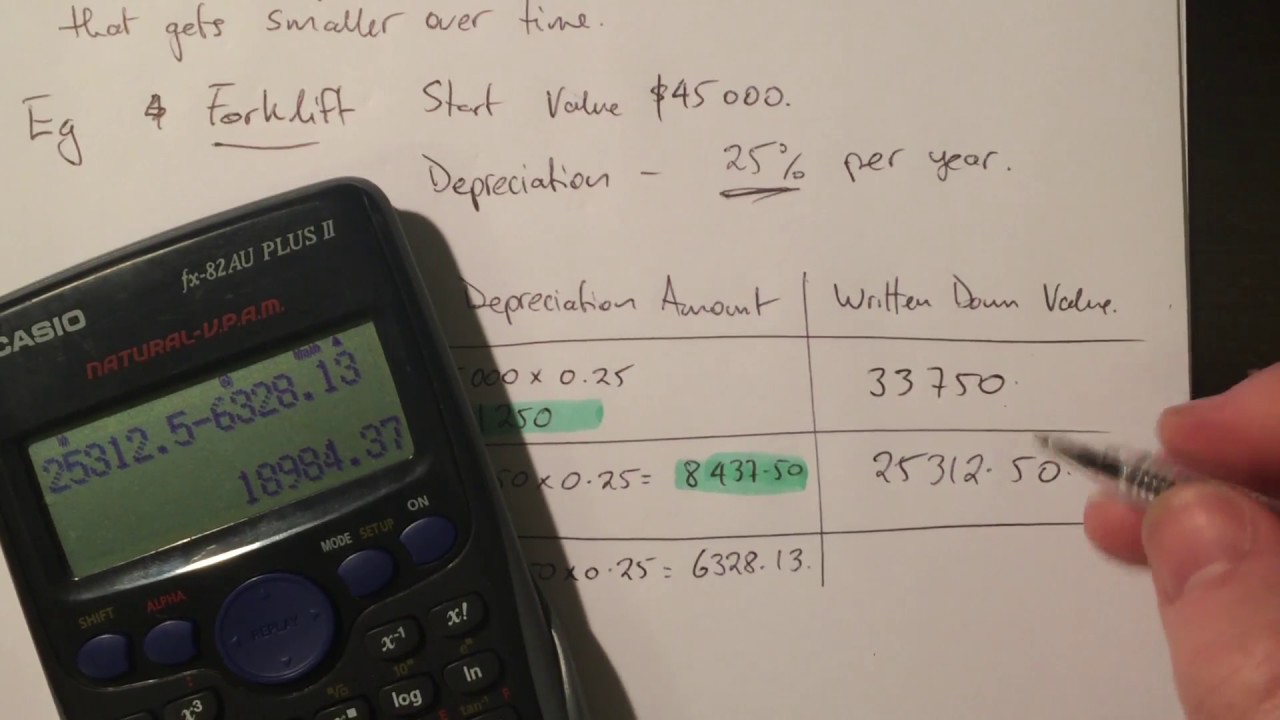 that gets smaller over time.
Eg Forklift Start Value $45 000.
Depreciation - 25% per year.
fx-82AU PLUS II
CASIO
NATURAL-V.P.A.M.
25312.5-6328.13
18984.37
Depreciation Amount Written Down Value.
000 x 0.25 33750.
1250
50 x 0.25 = 8 437.50 25312.50.
0 x 0.25 = 6328.13.
ON
MODE SETUP
SHIFT ALPHA
REPLAY
x⁻¹ x!
x³ log ln
tan⁻¹